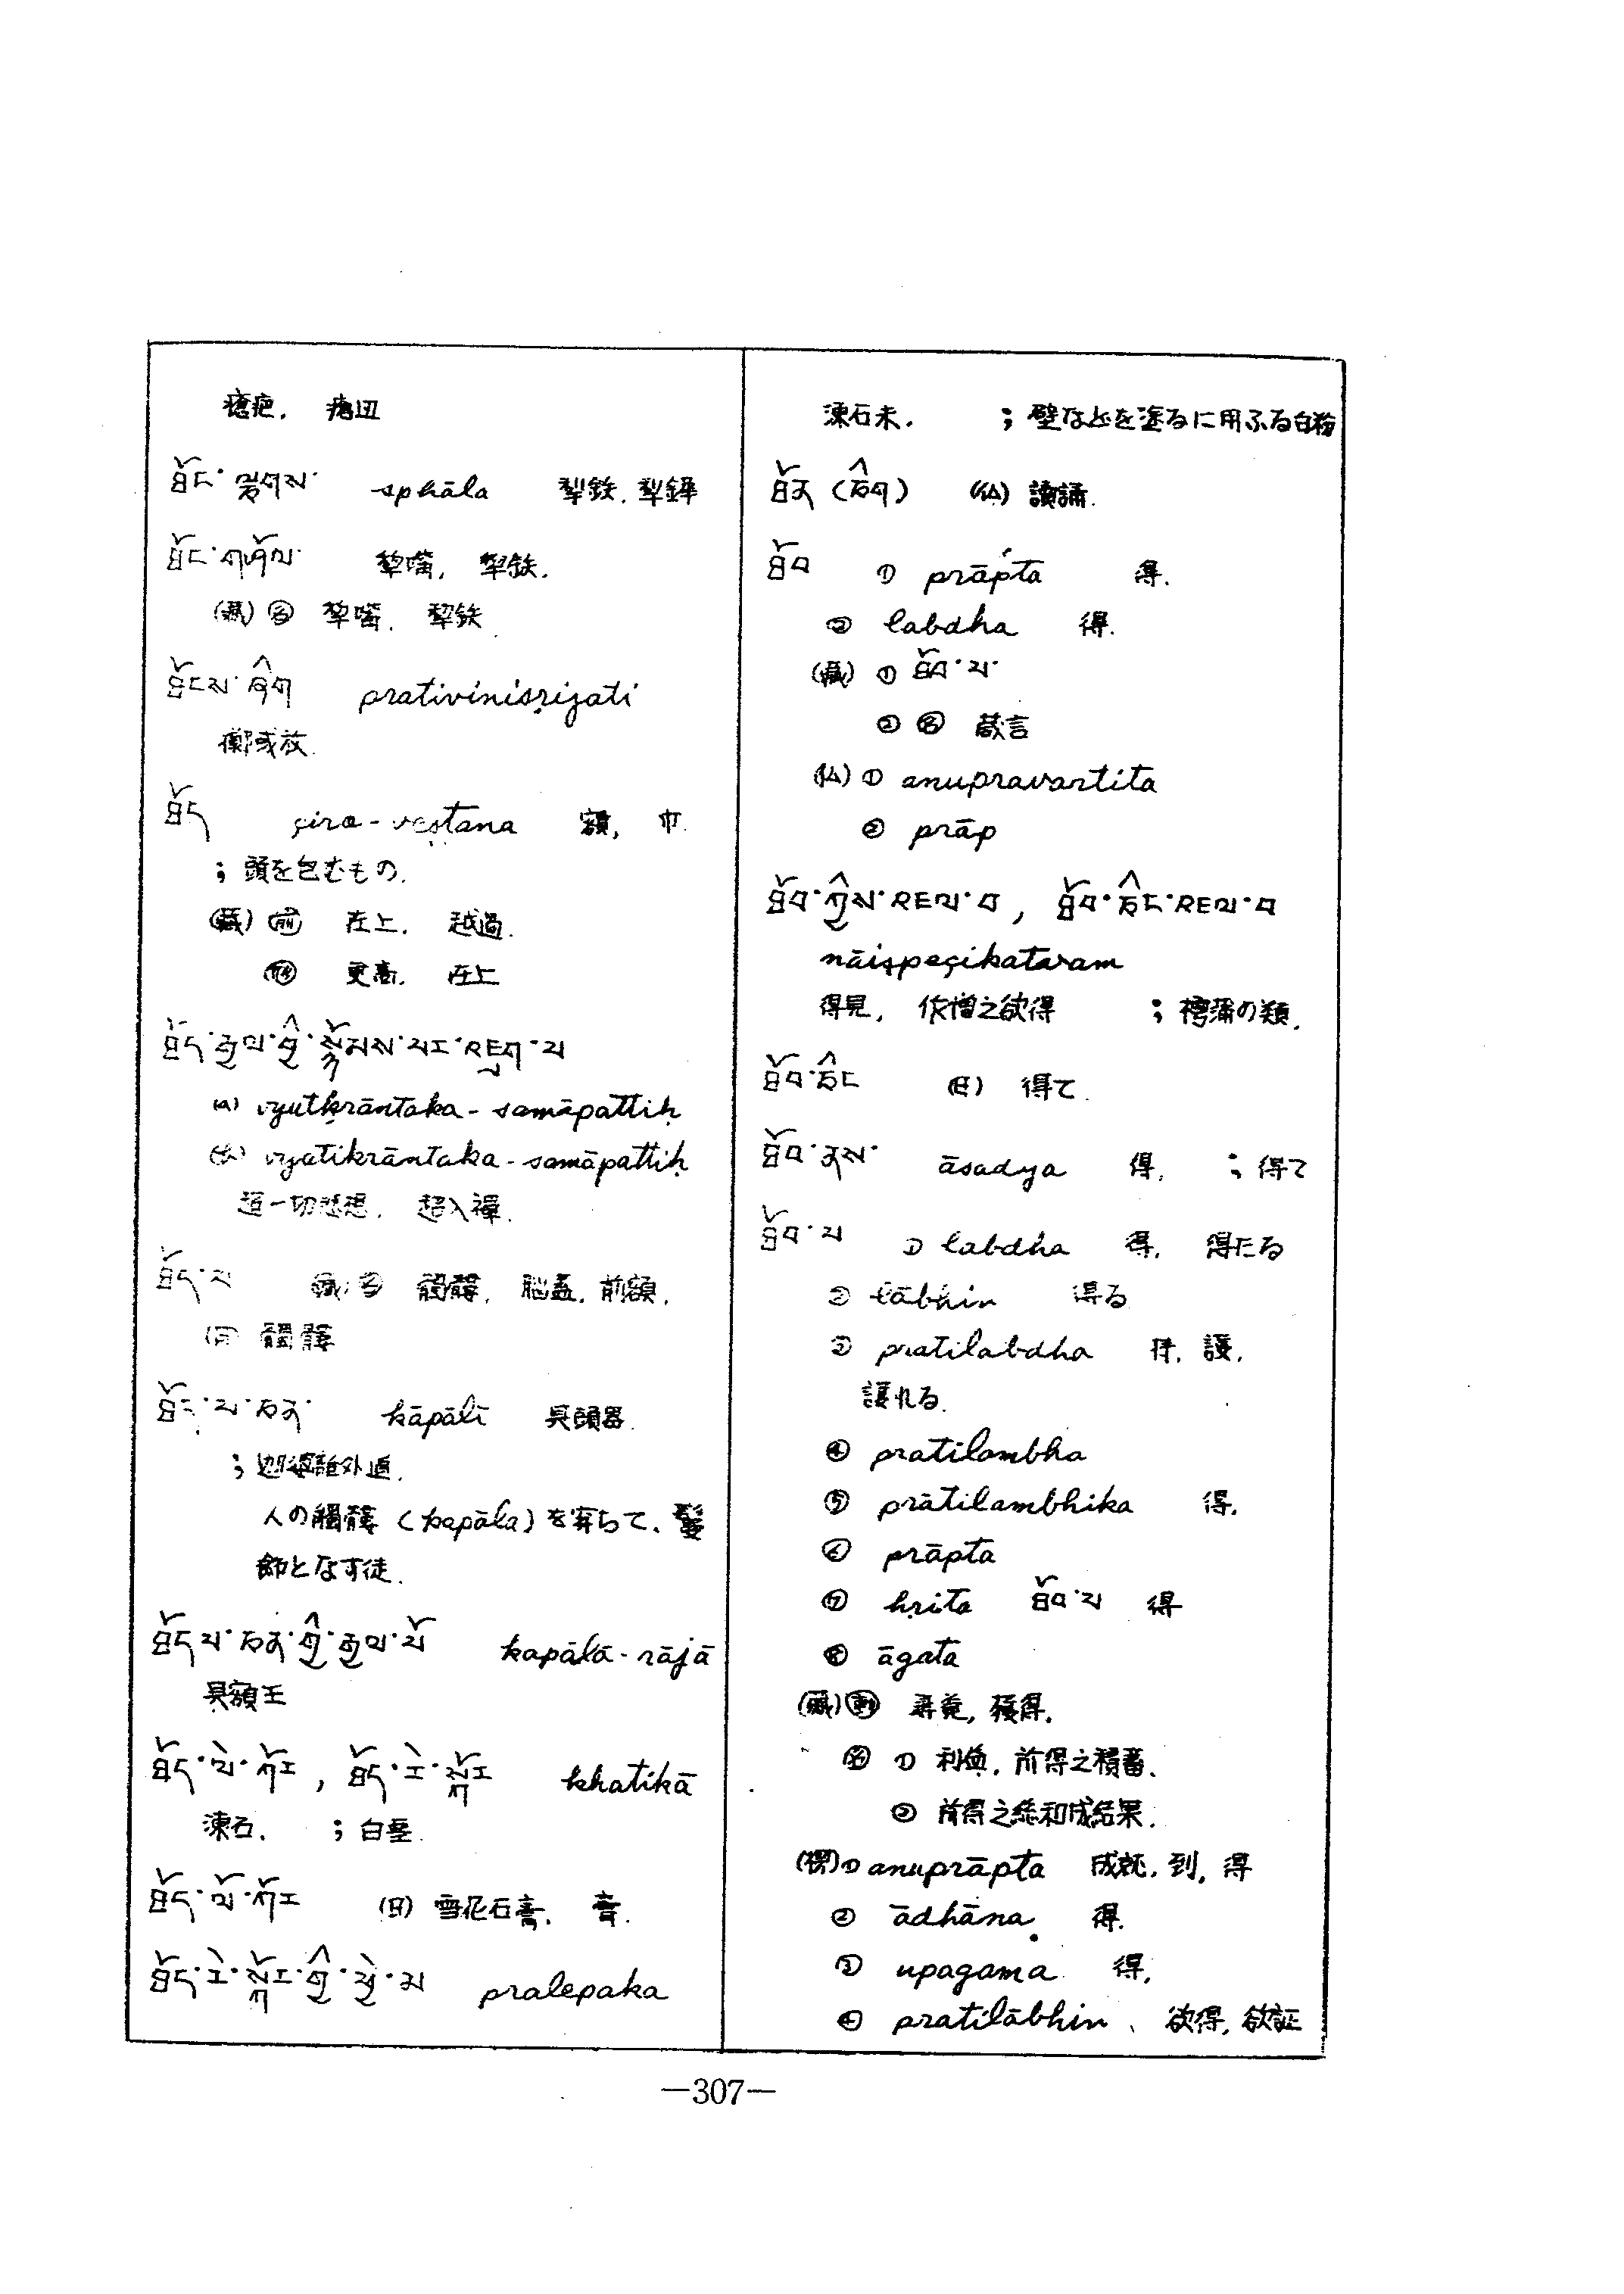 瘡疤, 瘡
ཐོང་ལྕགས་ sphāla 犁鉄, 犁鏵
ཐོང་གཤོལ་ 犂嘴, 犁鉄.
(蔵) 名 犂嘴, 犂鉄
ཐོངས་ཤིག prativinisṛijati
擲或放.
ཐོད çira-veṣṭana 額, 巾.
; 頭を包むもの.
(蔵) 前 在上, 越過.
更高, 在上
ཐོད་རྒྱལ་གྱི་སྙོམས་པར་འཇུག་པ
vyutkrāntaka-samāpattiḥ
vyatikrāntaka-samāpattiḥ
超一切思想, 超入禅.
ཐོད་པ (蔵) 名 髑髏, 脳蓋, 前額,
(日) 髑髏
ཐོད་པ་ཅན་ kāpālī 具頭器.
; 迦婆離外道,
人の髑髏 (kapāla) を穿ちて、鬘
飾となす徒.
ཐོདཔ་ཅན་གྱི་རྒྱལ་པོ kapālā-rājā
具額王
ཐོད་ལེ་ཀོར, ཐོད་རེ་སྐོར khatikā
凍石, ; 白堊.
ཐོད་ལོ་ཀོར (日) 雪花石膏, 膏.
ཐོད་རེ་སྐོར་གྱི་ཕྱེ་མ pralepaka
凍石末. ; 壁などを塗るに用ふる白粉
ཐོན (ཅིག) (仏) 讀誦.
ཐོབ ① prāpta 得.
② labdha 得.
(蔵) ① ཐོབ་པ་
② 名 蔵言
(仏) ① anupravartita
② prāp
ཐོབ་ཀྱིས་འཇལ་བ, ཐོབ་ཅིང་འཇལ་བ
nāiṣpeçikataram
得見, 依憎之欲得 ; 樗蒲の類.
ཐོབ་ཅིང (日) 得て.
ཐོབ་ནས་ āsadya 得, ; 得て
ཐོབ་པ ① labdha 得, 得たる
② lābhin 得る
③ pratilabdha 得, 護,
護れる.
④ pratilambha
⑤ prātilambhika 得,
⑥ prāpta
⑦ hṛita ཐོབ་པ 得
⑧ āgata
(蔵) 動 尋覓, 獲得,
名 ① 利益, 前得之積蓄,
② 前得之総和成結果.
① anuprāpta 成就, 到, 得
② ādhāna 得.
③ upagama 得,
④ pratilābhin、欲得, 欲証
—307—